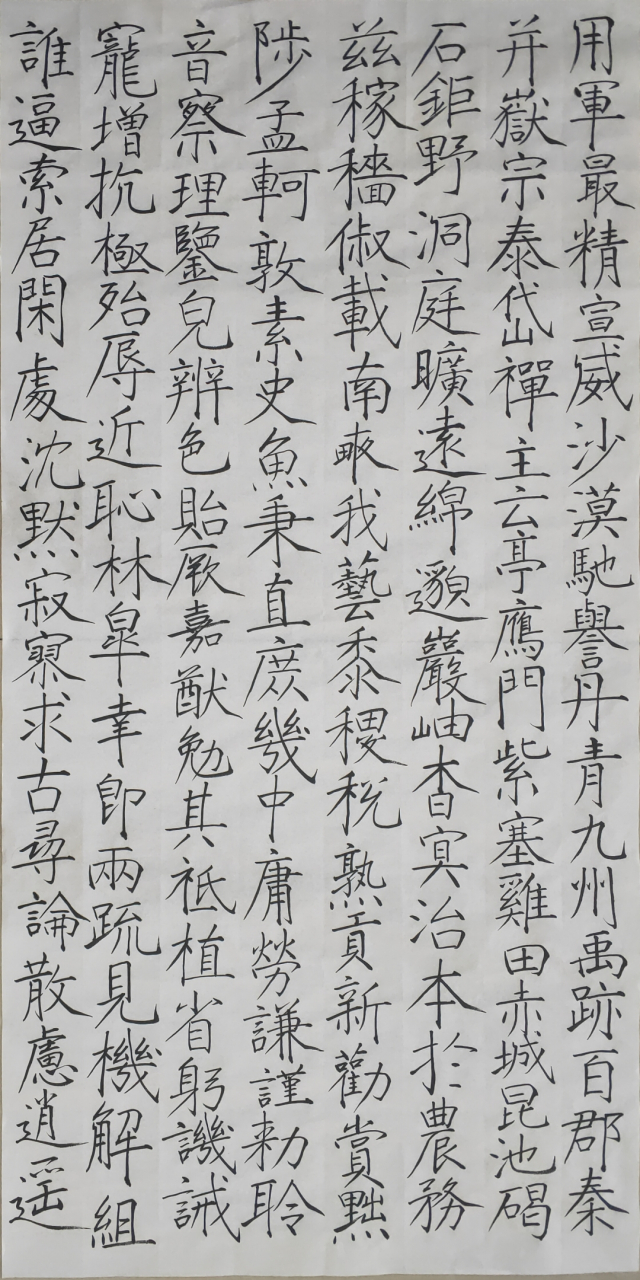 用軍最精宣威沙漠馳譽丹青九州禹跡百郡秦
并嶽宗泰岱禪主云亭鴈門紫塞雞田赤城昆池碣
石鉅野洞庭曠遠綿邈巖岫杳冥治本於農務
茲稼穡俶載南畝我藝黍稷稅熟貢新勸賞黜
陟孟軻敦素史魚秉直庶幾中庸勞謙謹勅聆
音察理鑒皃辨色貽厥嘉猷勉其祗植省躬譏誡
寵增抗極殆辱近恥林皐幸即兩疏見機解組
誰逼索居閑處沈默寂寥求古尋論散慮逍遥